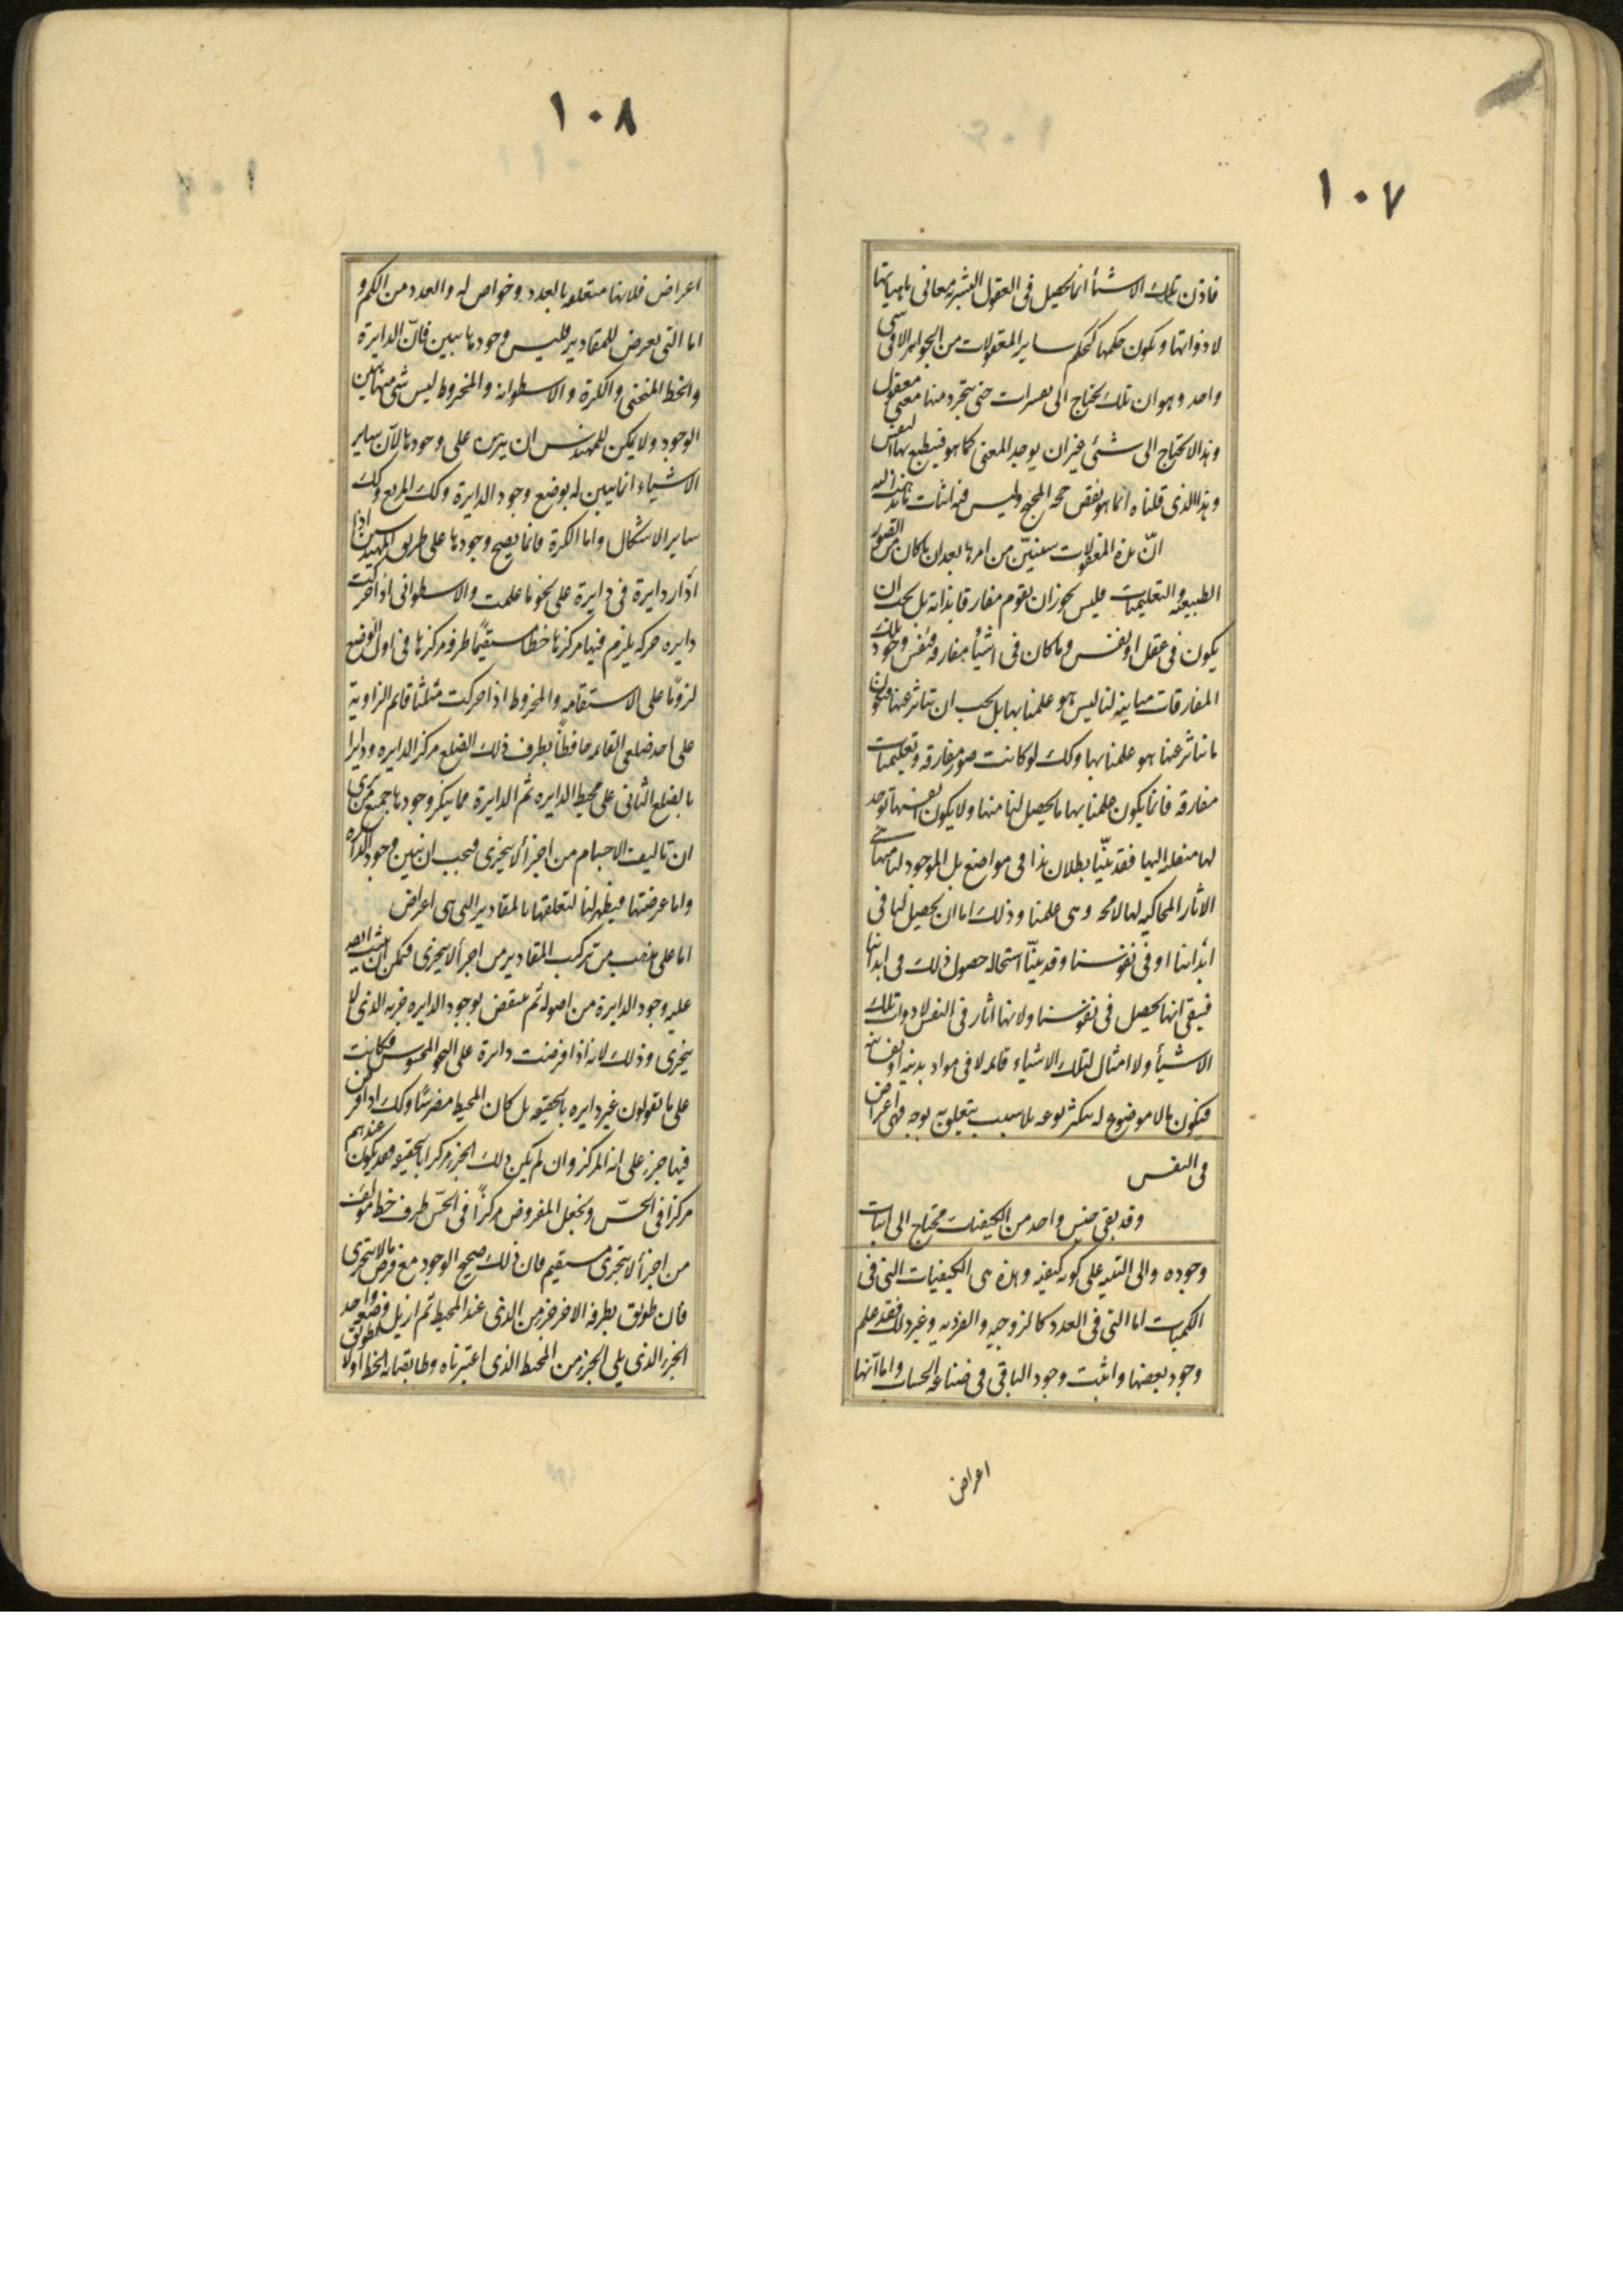 ١٠٧
فاذن تلك الاشيأ انما تحصل فى العقول البشريه معانى ماهياتها
لا ذواتها و يكون حكمها كحكم ساير المعقولات من الجواهر الا فى شى
واحد و هو ان تلك يحتاج الى تفسيرات حتى يتجرد منها معنى معقول
و هذا لا يحتاج الى شئ غير ان يوجد المعنى كما هو فينطبع بها النفس
و هذا الذى قلناه انما هو نقض حجة المحتج و ليس فيه اثبات ما نذهب اليه
انّ هذه المعقولات سنبيّن من امرها بعد ان ما كان من الصور
الطبيعيه و التعليميات فليس يجوز ان يقوم مفارقا بذاته بل يجب ان
يكون فى عقل او نفس و ما كان فى اشيأ مفارقه فنفس وجود تلك
المفارقات مباينه لنا ليس هو علمنا بها بل يجب ان نتاثر عنها فيكون
ما نتاثر عنها هو علمنا بها و كك لو كانت صور مفارقه و تعليميات
مفارقه فانما يكون علمنا بها ما يحصل لنا منها و لا يكون انفسها توجد
لنا منتقله الينا فقد بيّنا بطلان هذا فى مواضع بل الموجود لنا منها هى
الاثار المحاكيه لها لا محه و هى علمنا و ذلك اما ان يحصل لنا فى
ابداننا او فى نفوسنا و قد بيّنا استحاله حصول ذلك فى ابداننا
فبقى انها تحصل فى نفوسنا و لانها اثار فى النفس لا ذوات تلك
الاشيأ و لا امثال لتلك الاشياء قائمه لا فى مواد بدنيه او نفسانيه
فيكون ما لا موضوع له يتكثر نوعه بلا سبب يتعلق به بوجه فهى اعراض
فى النفس
و قد بقى جنس واحد من الكيفيات محتاج الى اثبات
وجوده و الى التنبيه على كونه كيفيه و هذه هى الكيفيات التى فى
الكميات اما التى فى العدد كالزوجيه و الفرديه و غير ذلك فقد علم
وجود بعضها و اثبت وجود الباقى فى صناعة الحساب و اما انها
اعراض
١٠٨
اعراض فلانها متعلقه بالعدد و خواص له و العدد من الكم و
اما التى تعرض للمقادير فليس وجودها ببين فانّ الدايرة
و الخط المنحنى و الكرة و الاسطوانه و المخروط ليس شئ منها ببين
الوجود و لا يمكن للمهندس ان يبرهن على وجودها لان ساير
الاشياء انما يبين له بوضع وجود الدايرة و كك المربع و كك
ساير الاشكال و اما الكرة فانما يصح وجودها على طريق المهندسين اذا
ادار دايرة فى دايرة على نحو ما علمت و الاسطوانى اذا حركت
دايره حركه يلزم فيها مركزها خطا مستقيمًا طرفه مركزها فى اول الوضع
لزومًا على الاستقامه و المخروط اذا حركت مثلثا قائم الزاوية
على احد ضلعى القائمه حافظًا بطرف ذلك الضلع مركز الدايره و دايرا
بالضلع الثانى على محيط الدايره ثم الدايرة مما ينكر وجودها جميع من يرى
ان تاليف الاجسام من اجزأ لا يتجزى فيجب ان نبين وجود الدايره
و اما عرضيتها فيظهر لنا لتعلقها بالمقادير التى هى اعراض
اما على مذهب من تركب المقادير من اجزأ لا يتجزى فيمكن ان يثبت ايضه
عليه وجود الدايرة من اصوله ثم ينقض بوجود الدايره جزءه الذى لا
يتجزى و ذلك لانه اذا فرضت دائرة على النحو المحسوس و كانت
على ما يقولون غير دايره بالحقيقه بل كان المحيط مضرسًا و كك اذا فرض
فيها جزء على انه المركز و ان لم يكن ذلك الجزء مركزا بالحقيقه فقد يكون عندهم
مركزا فى الحسّ و يجعل المفروض مركزًا فى الحسّ طرف خط مؤلف
من اجزأ لا يتجزى مستقيم فان ذلك صحيح الوجود مع فرض ما لا يتجزى
فان طوبق بطرفه الاخر جزء من الذى عند المحيط ثم ازيل وضعه و اخذ
الجزء الذى يلى الجزء من المحيط الذى اعتبرناه و طابقناه الخط اولا